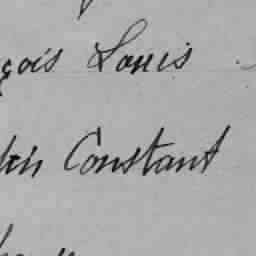 çois Louis
Constant